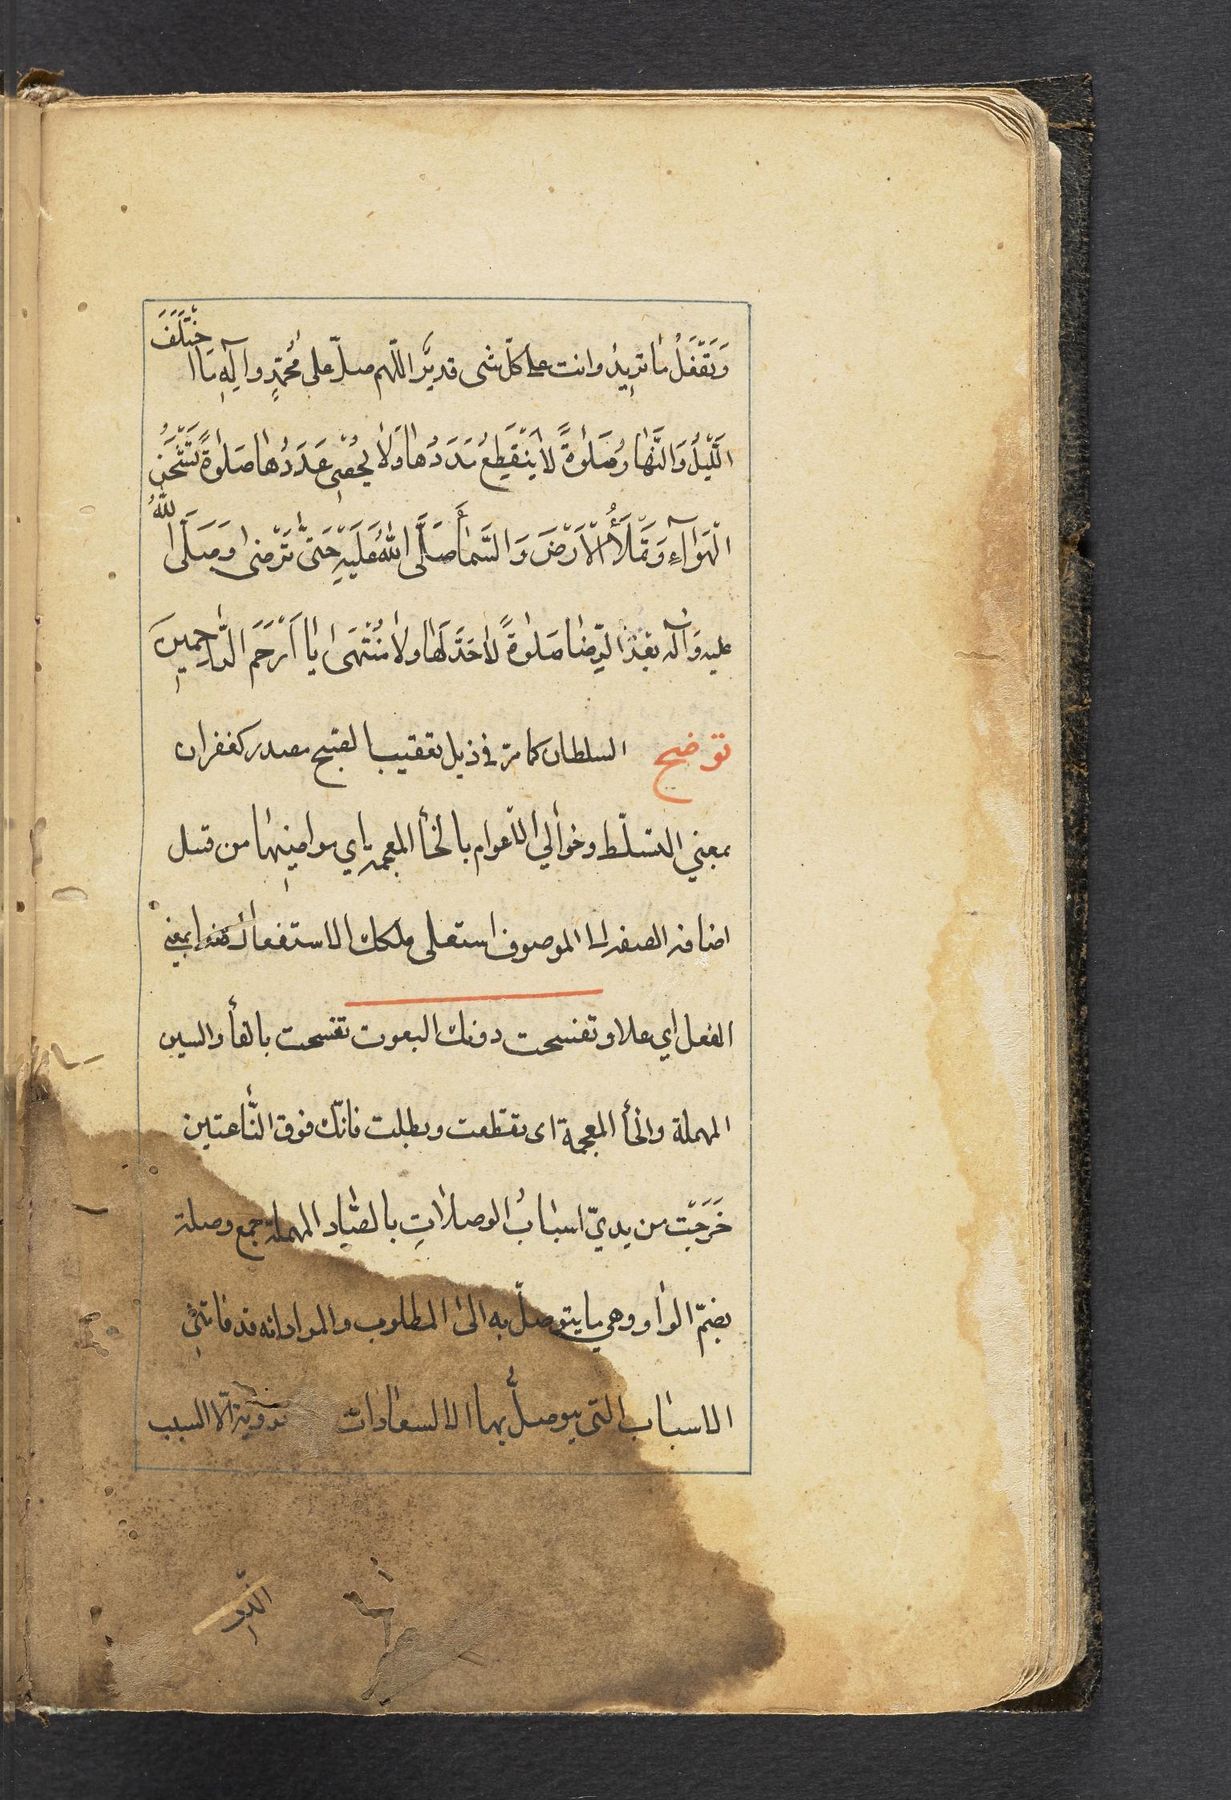 وَتَفْعَلُ ما تريدُ وانت على كلّ شى قديرٌ اللّهم صلّ على مُحَمّدٍ وآلِهِ مَا اخْتَلَفَ
اللَّيْلُ وَالنَّهارُ صَلوٰةً لا يَنْقَطِعُ مَدَدُها وَلا يُحْصىٰ عَدَدُها صَلوٰةً تَشْحَنُ
الْهَوآءَ وَتَمْلَأُ الْاَرْضَ وَالسَّمآءَ صَلَّى اللهُ عَلَيْهِ حَتىّٰ تَرْضىٰ وَصَلَّى اللهُ
عليه وَآله بَعْدَ الرِّضا صَلوٰةً لا حَدَّ لَها ولا مُنْتَهىٰ يا اَرْحَمَ الرّاحِمينَ
توضيح السلطان كما مرّ في ذيل تعقيب الصبح مصدر كغفران
بمعني التسلّط وخوالي الاعوام بالخاء المعجمة اي مواضيها من قبيل
اضافه الصفه الى الموصوف استعلى ملكك الاستفعال هنا بمعنى
الفعل اي علا وتفسخت دونك النعوت تفسخت بالفاء والسين
المهملة والخاء المعجمة اى تقطعت وبطلت فانّك فوق الناعتين
خَرَجَتْ من يديّ اسبابُ الوصلاتِ بالصّاد المهملة جمع وصلة
بضمّ الواو وهي ما يتوصلّ به الى المطلوب والمراد انه قد فاتني
الاسباب التى يتوصلّ بها الى السعادات الا السبب